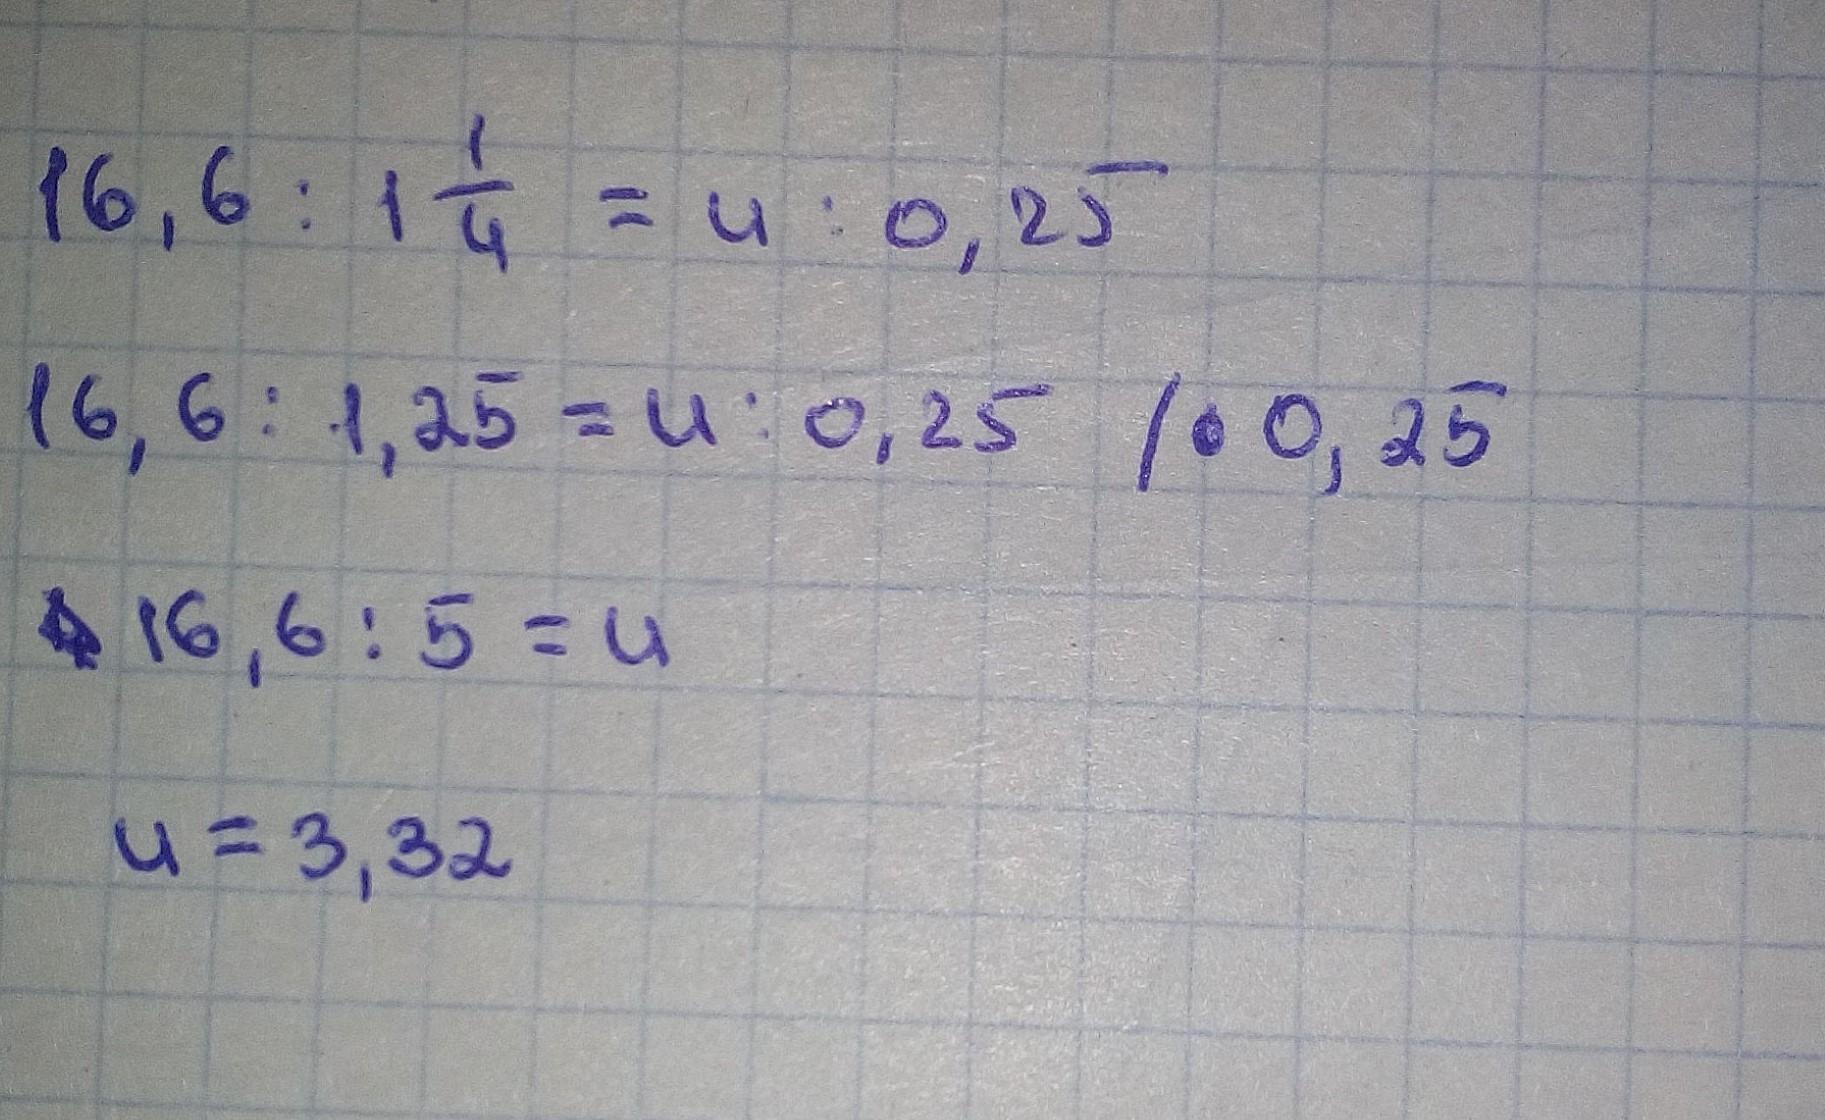 16,6 : 1 1/4 = u : 0,25
16,6 : 1,25 = u : 0,25 /• 0,25
16,6 : 5 = u
u = 3,32